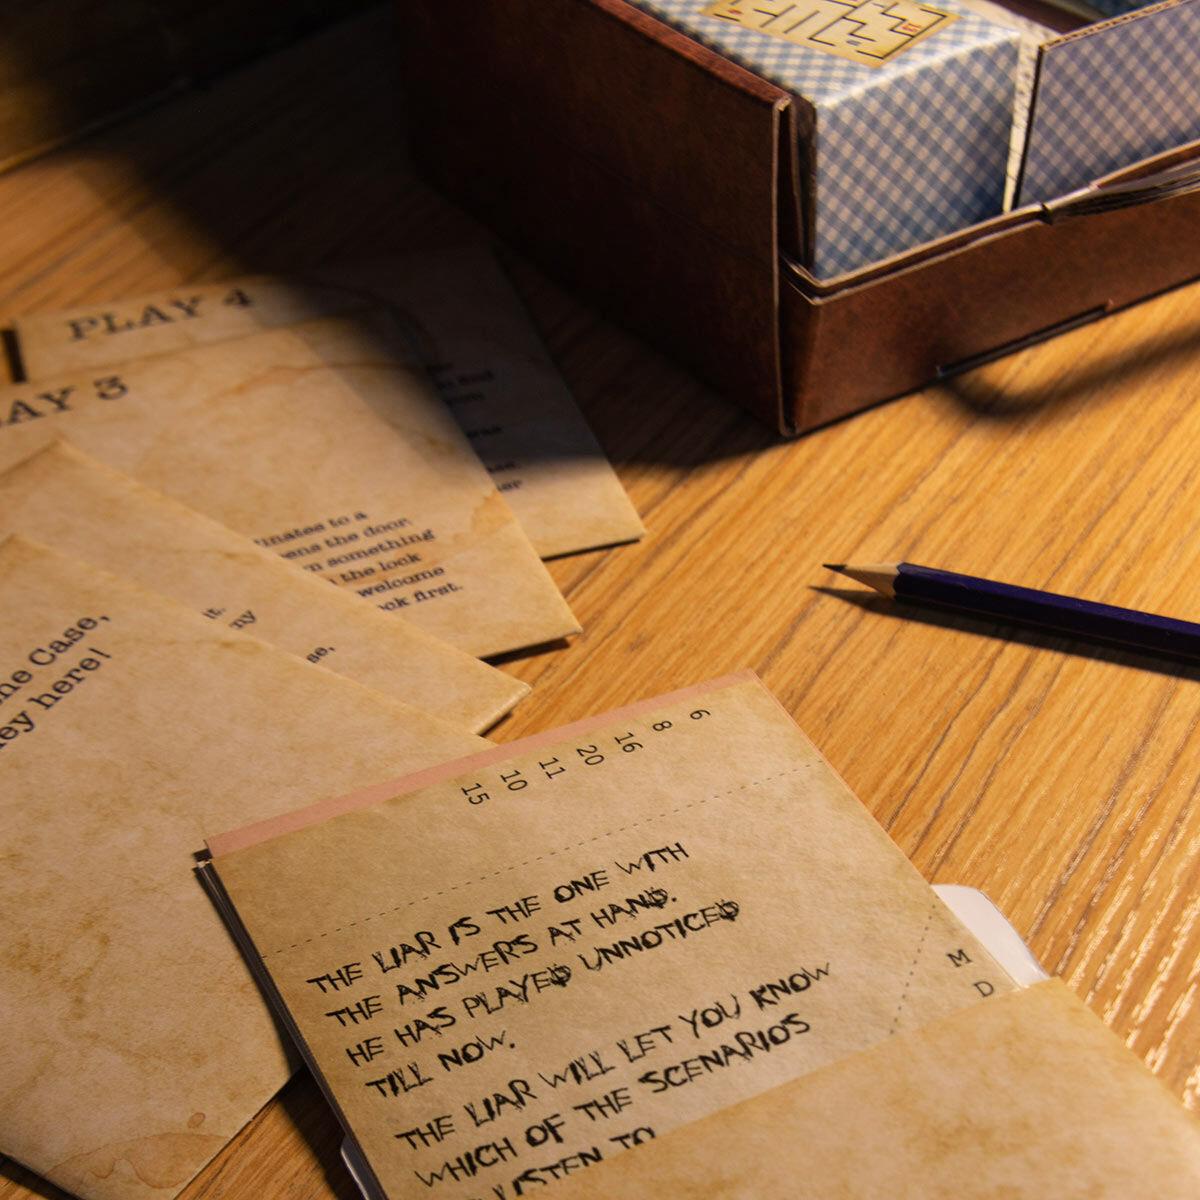 PLAY 4
AY 3
inates to a
ens the door.
n something
the lock
welcome
ock first.
ny
se,
he Case,
ey here!
6
8
16
20
11
10
15
THE LIAR IS THE ONE WITH
THE ANSWERS AT HAND.
HE HAS PLAYED UNNOTICED
TILL NOW.
THE LIAR WILL LET YOU KNOW
WHICH OF THE SCENARIOS
LISTEN TO
M
D